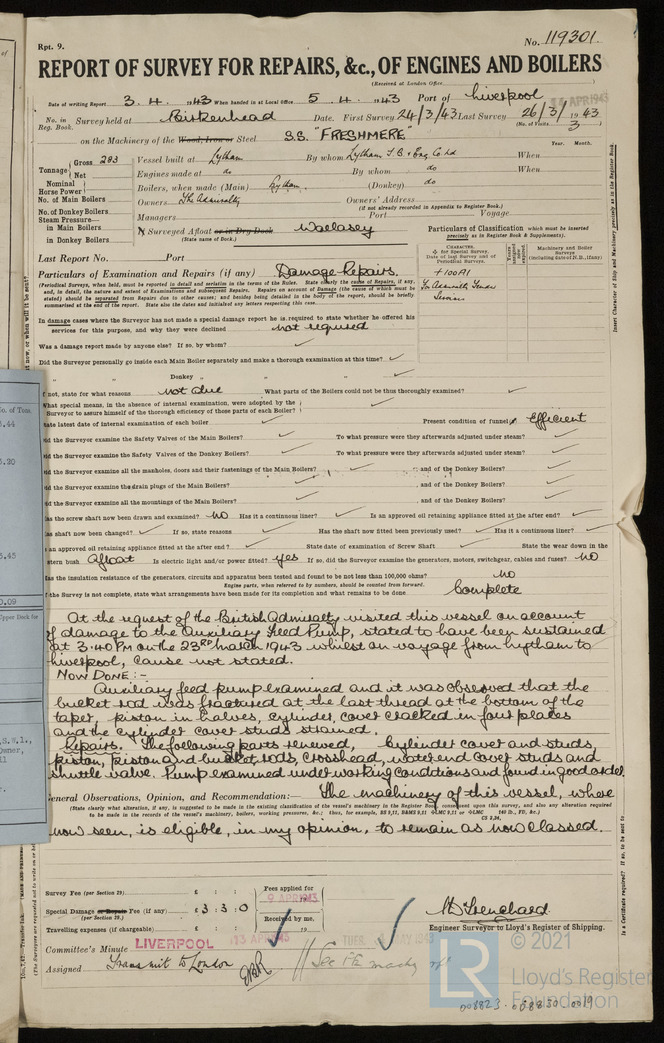 Rpt. 9.
No. 119301
REPORT OF SURVEY FOR REPAIRS, &c., OF ENGINES AND BOILERS
(Received at London Office
14 APR 1943
Date of writing Report 3. 4. 1943 When handed in at Local Office 5. 4. 1943 Port of Liverpool
No. in Reg. Book. Survey held at Birkenhead Date. First Survey 24/3/43 Last Survey 26/3/1943
(No. of Visits 3
on the Machinery of the Wood, Iron or Steel S.S. "FRESHMERE"
Year. Month.
Tonnage Gross 283 Vessel built at Lytham By whom Lytham S.B. & Eng. Co Ld When
Net Engines made at do By whom do When
Nominal Horse Power Boilers, when made (Main) Lytham (Donkey) do
No. of Main Boilers Owners The Admiralty Owners' Address
(if not already recorded in Appendix to Register Book.)
No. of Donkey Boilers Managers Port Voyage
Steam Pressure—
in Main Boilers If Surveyed Afloat or in Dry Dock Wallasey
in Donkey Boilers (State name of Dock.)
Particulars of Classification which must be inserted precisely as in Register Book & Supplements).
CHARACTER. for Special Survey. Date of last Survey and of Periodical Surveys.
Machinery and Boiler Surveys (including date of N.B., if any)
+100A1
For Admiralty Tender Services
Last Report No. Port
Particulars of Examination and Repairs (if any) Damage Repairs.
(Periodical Surveys, when held, must be reported in detail and seriatim in the terms of the Rules. State clearly the cause of Repairs, if any,
In damage cases where the Surveyor has not made a special damage report he is required to state whether he offered his
services for this purpose, and why they were declined not required
Was a damage report made by anyone else? If so, by whom?
Did the Surveyor personally go inside each Main Boiler separately and make a thorough examination at this time?
" " Donkey " " "
If not, state for what reasons not due What parts of the Boilers could not be thus thoroughly examined?
What special means, in the absence of internal examination, were adopted by the
Surveyor to assure himself of the thorough efficiency of those parts of each Boiler?
State latest date of internal examination of each boiler Present condition of funnel Efficient
Did the Surveyor examine the Safety Valves of the Main Boilers? To what pressure were they afterwards adjusted under steam?
Did the Surveyor examine the Safety Valves of the Donkey Boilers? To what pressure were they afterwards adjusted under steam?
Did the Surveyor examine all the manholes, doors and their fastenings of the Main Boilers? and of the Donkey Boilers?
Did the Surveyor examine the drain plugs of the Main Boilers? and of the Donkey Boilers?
Did the Surveyor examine all the mountings of the Main Boilers? and of the Donkey Boilers?
Has the screw shaft now been drawn and examined? No Has it a continuous liner? Is an approved oil retaining appliance fitted at the after end?
Has shaft now been changed? If so, state reasons Has the shaft now fitted been previously used? Has it a continuous liner?
Is an approved oil retaining appliance fitted at the after end? State date of examination of Screw Shaft State the wear down in the
stern bush afloat Is electric light and/or power fitted? yes If so, did the Surveyor examine the generators, motors, switchgear, cables and fuses? No
Has the insulation resistance of the generators, circuits and apparatus been tested and found to be not less than 100,000 ohms? No
Engine parts, when referred to by numbers, should be counted from forward.
If the Survey is not complete, state what arrangements have been made for its completion and what remains to be done Complete
At the request of the British Admiralty visited this vessel on account
of damage to the Auxiliary Feed Pump, stated to have been sustained
at 3.40 PM on the 23RD March 1943 whilst on voyage from Lytham to
Liverpool, cause not stated.
NOW DONE :-
Auxiliary feed pump examined and it was observed that the
bucket rod was fractured at the last thread at the bottom of the
taper, piston in halves, cylinder cover cracked in four places
and the cylinder cover studs strained.
Repairs. The following parts renewed, Cylinder cover and studs,
piston, piston and bucket rods, crosshead, water end cover studs and
shuttle valve. Pump examined under working conditions and found in good order.
General Observations, Opinion, and Recommendation:— The machinery of this vessel, where
(State clearly what alteration, if any, is suggested to be made in the existing classification of the vessel's machinery in the Register Book consequent upon this survey, and also any alteration required
to be made in the records of the vessel's machinery, boilers, working pressures, &c.;
now seen, is eligible, in my opinion, to remain as now classed.
Survey Fee (per Section 29) £ : : Fees applied for
9 APR 1943
Special Damage or Repair Fee (if any) £ 3 : 3 : 0
(per Section 29.) Received by me,
Travelling expenses (if chargeable) £ : : 19
Engineer Surveyor to Lloyd's Register of Shipping.
Committee's Minute LIVERPOOL 13 APR 1943 TUES. MAY 1943
Assigned Transmit to London
© 2021
Lloyd's Register
Foundation
LR
008823-008830-0019